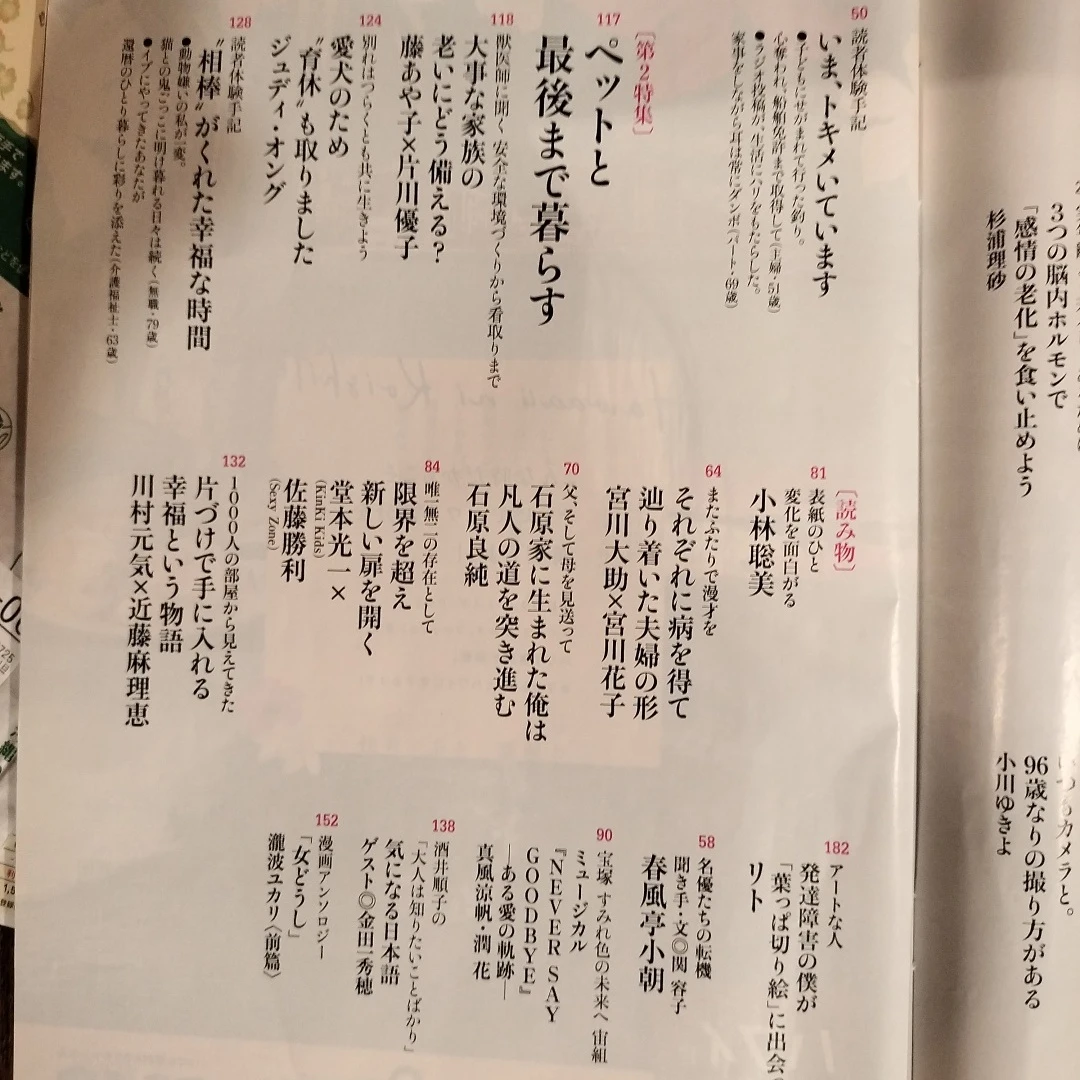 3つの脳内ホルモンで
「感情の老化」を食い止めよう
杉浦理砂
カメラと。
96歳なりの撮り方がある
小川ゆきよ
50
読者体験手記
いま、トキメいています
●子どもにせがまれて行った釣り。
心奪われ、船舶免許まで取得して(主婦・51歳)
●ラジオ投稿が、生活にハリをもたらした。
家事をしながら耳は常にダンボ(パート・69歳)
[第2特集]
117
ペットと
最後まで暮らす
118
獣医師に聞く 安全な環境づくりから看取りまで
大事な家族の
老いにどう備える?
藤あや子×片川優子
124
別れはつらくとも共に生きよう
愛犬のため
“育休”も取りました
ジュディ・オング
128
読者体験手記
“相棒”がくれた幸福な時間
●動物嫌いの私が一変。
猫との鬼ごっこに明け暮れる日々は続く(無職・79歳)
●イブにやってきたあなたが
還暦のひとり暮らしに彩りを添えた(介護福祉士・63歳)
[読み物]
81
表紙のひと
変化を面白がる
小林聡美
64
またふたりで漫才を
それぞれに病を得て
辿り着いた夫婦の形
宮川大助×宮川花子
70
父、そして母を見送って
石原家に生まれた俺は
凡人の道を突き進む
石原良純
84
唯一無二の存在として
限界を超え
新しい扉を開く
堂本光一×
(KinKi Kids)
佐藤勝利
(Sexy Zone)
132
1000人の部屋から見えてきた
片づけで手に入れる
幸福という物語
川村元気×近藤麻理恵
182
アートな人
発達障害の僕が
「葉っぱ切り絵」に出会
リト
58
名優たちの転機
聞き手・文◎関 容子
春風亭小朝
90
宝塚 すみれ色の未来へ 宙組
ミュージカル
『NEVER SAY
GOODBYE』
―ある愛の軌跡―
真風涼帆・潤 花
138
酒井順子の
「大人は知りたいことばかり」
気になる日本語
ゲスト◎金田一秀穂
152
漫画アンソロジー
「女どうし」
瀧波ユカリ〈前篇〉